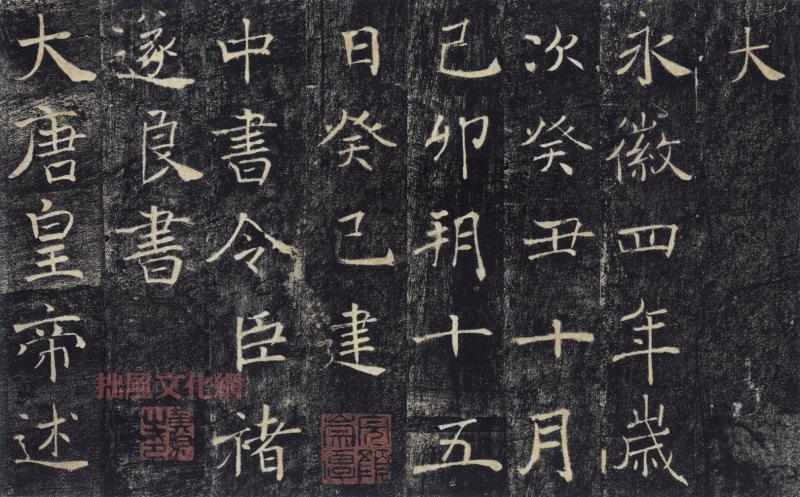 大
永徽四年歲
次癸丑十月
己卯朔十五
日癸巳建
中書令臣褚
遂良書
大唐皇帝述
拙風文化網